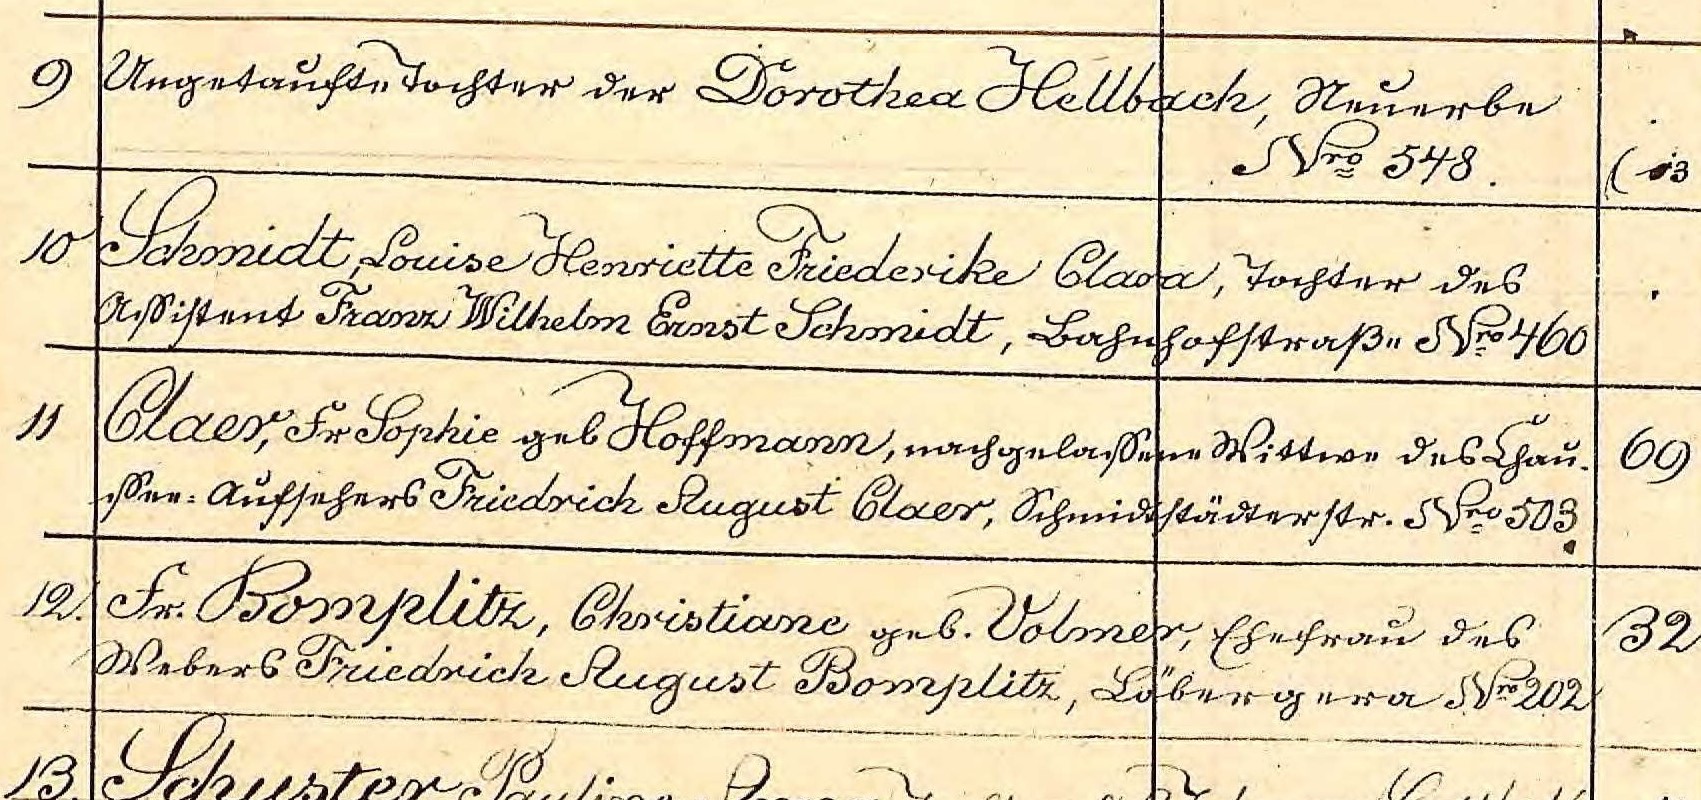 9 Ungetaufte Tochter der Dorothea Hellbach, Neuerbe
Nro 548. ( 13
10 Schmidt, Louise Henriette Friederike Clara, Tochter des
Assistent Franz Wilhelm Ernst Schmidt, Bahnhofstraße Nro 460
11 Claer, Fr Sophie geb Hoffmann, nachgelassene Wittwe des Chau- 69
ssee-Aufsehers Friedrich August Claer, Schmidtstädterstr. Nro 503.
12. Fr. Bomplitz, Christiane geb. Volmer, Ehefrau des 32
Webers Friedrich August Bomplitz, Löbergera Nro 202
13. Schuster Pauline